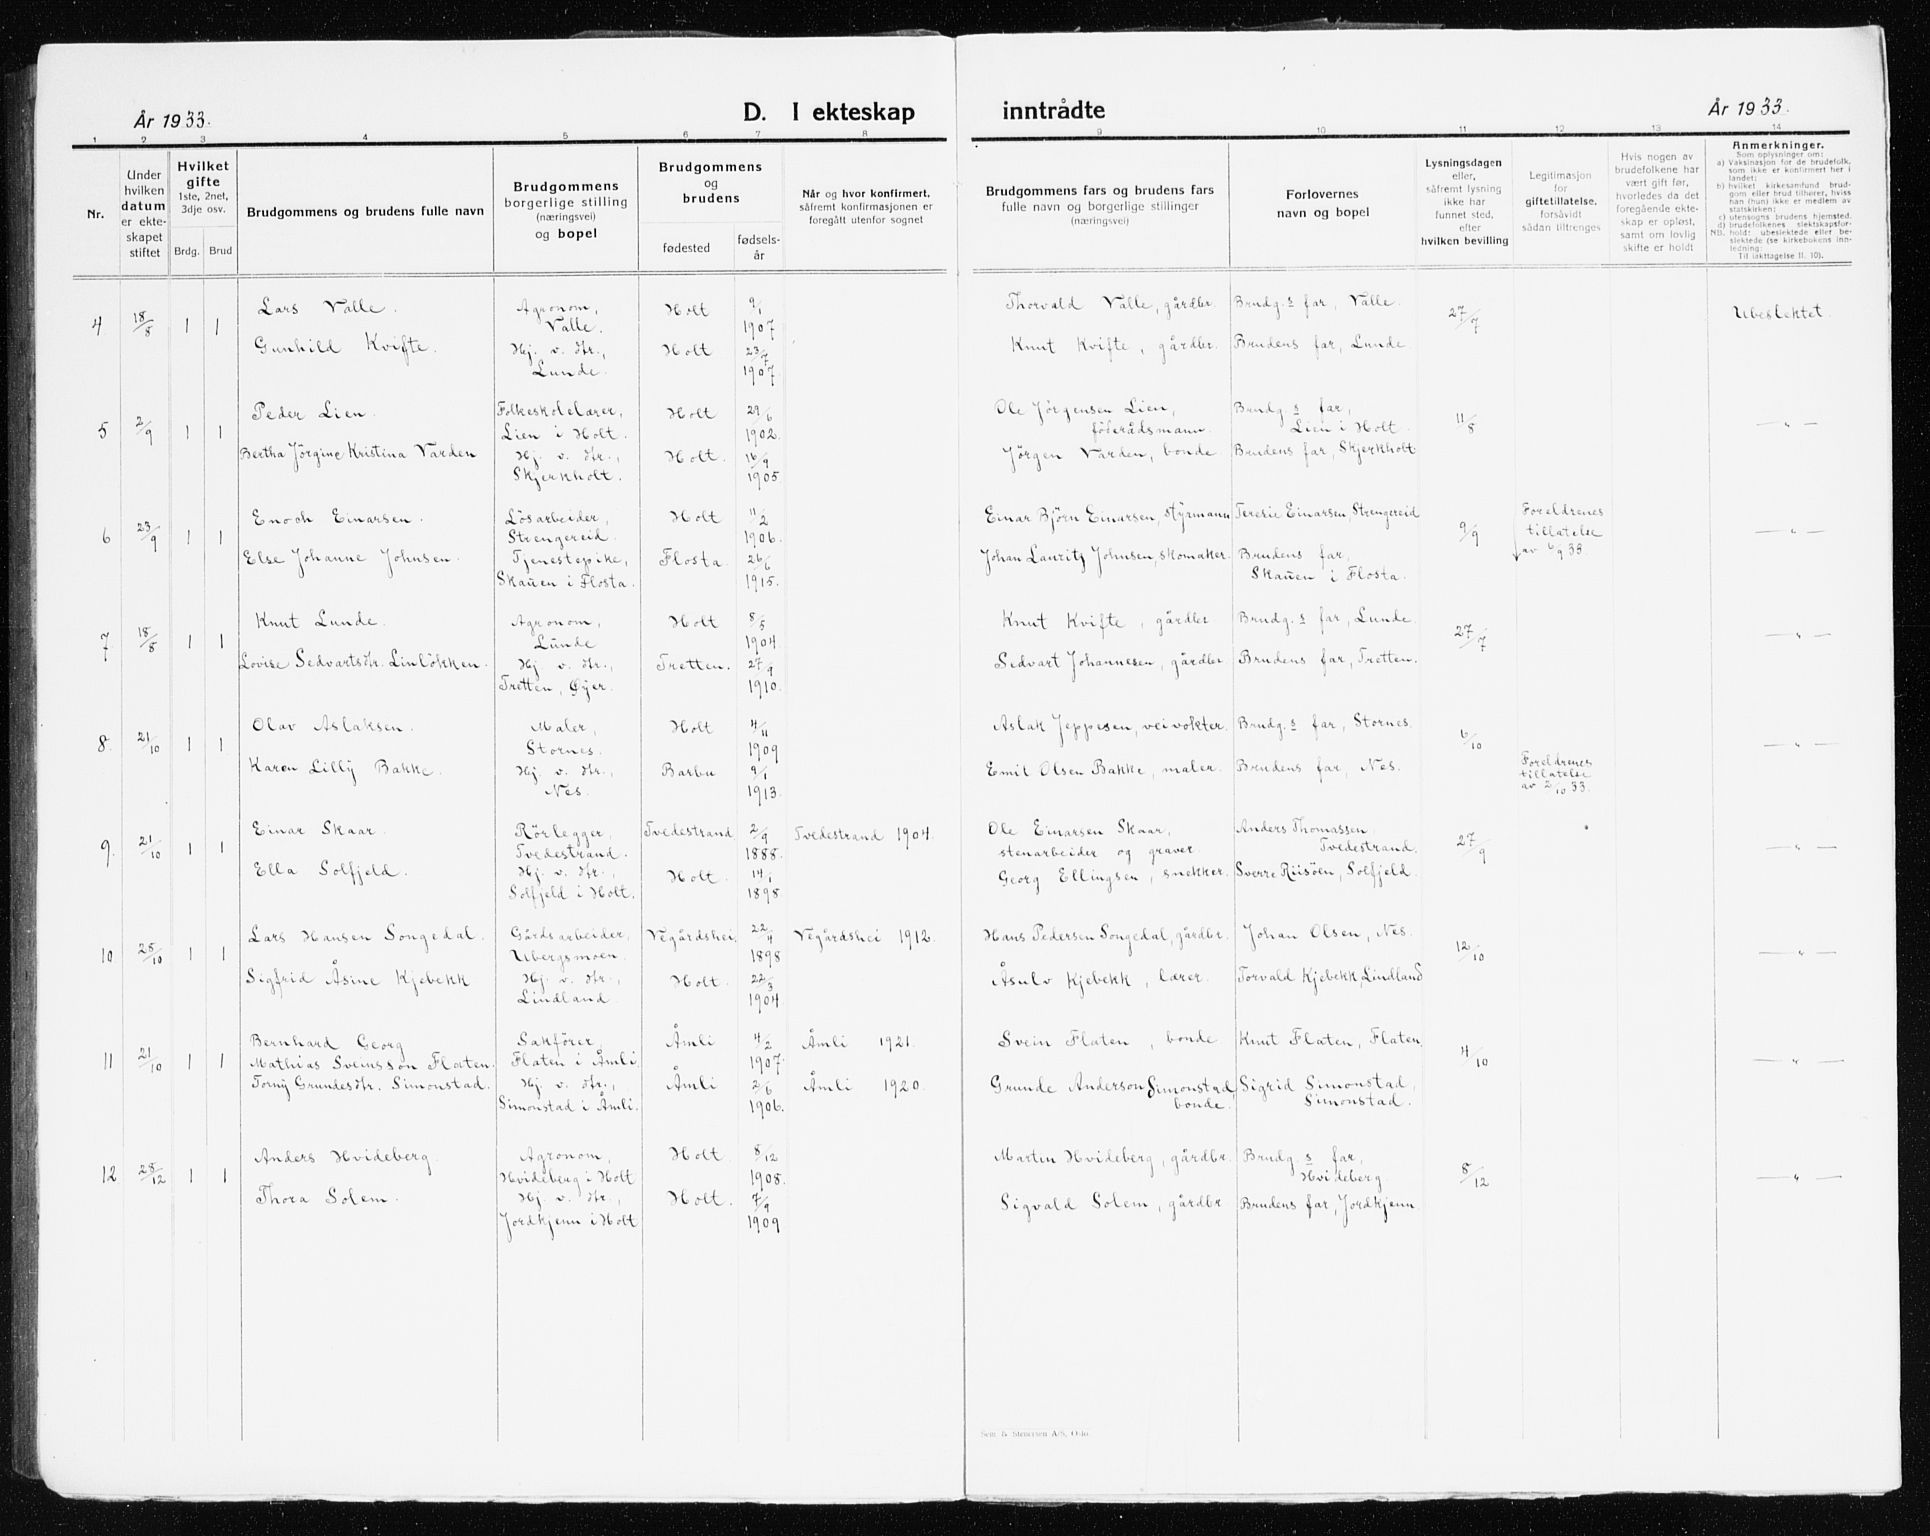 År 1933.
D. I ekteskap inntrådte
År 1933.
1 2 3 4 5 6 7 8 9 10 11 12 13 14
Nr.
Under hvilken datum er ekteskapet stiftet
Hvilket gifte 1ste, 2net, 3dje osv.
Brdg. Brud
Brudgommens og brudens fulle navn
Brudgommens borgerlige stilling (næringsvei) og bopel
Brudgommens og brudens
fødested
fødselsår
Når og hvor konfirmert, såfremt konfirmasjonen er foregått utenfor sognet
Brudgommens fars og brudens fars fulle navn og borgerlige stillinger (næringsvei)
Forlovernes navn og bopel
Lysningsdagen eller, såfremt lysning ikke har funnet sted, efter hvilken bevilling
Legitimasjon for giftetillatelse, forsåvidt sådan tiltrenges
Hvis nogen av brudefolkene har vært gift før, hvorledes da det foregående ekteskap er opløst, samt om lovlig skifte er holdt
Anmerkninger.
Som oplysninger om:
a) Vaksinasjon for de brudefolk, som ikke er konfirmert her i landet;
b) hvilket kirkesamfund brudgom eller brud tilhører, hvis han (hun) ikke er medlem av statskirken;
c) utensogns brudens hjemsted.
d) brudefolkenes slektskapsforhold: ubeslektede eller beslektede (se kirkebokens innledning:
NB. Til iakttagelse II. 10).
4 18/8 1 1 Lars Valle. Agronom, Valle. Holt 9/1 1907 Thorvald Valle, gårdbr. Brudg.s far, Valle. 27/7 Ubeslektet.
Gunhild Kvifte. Hj. v. dtr., Lunde. Holt 23/7 1907. Knut Kvifte, gårdbr. Brudens far, Lunde.
5 2/9 1 1 Peder Lien. Folkeskolelærer, Lien i Holt. Holt 29/6 1902. Ole Jörgensen Lien, föderådsmann. Brudg.s far, Lien i Holt. 11/8 — " —
Bertha Jörgine Kristina Varden Hj. v. dtr., Skjerkholt. Holt. 16/9 1905. Jörgen Varden, bonde. Brudens far, Skjerkholt
6 23/9 1 1 Enoch Einarsen. Lösarbeider, Strengereid. Holt 11/2 1906. Einar Björn Einarsen, styrmann Teresie Einarsen, Strengereid 9/9 Foreldrenes tillatelse av 6/9 33. — " —
Else Johanne Johnsen. Tjenestepike, Skaüen i Flosta. Flosta. 26/6 1915. Johan Lauritz Johnsen, skomaker. Brudens far, Skaüen i Flosta.
7 18/8 1 1 Knut Lunde. Agronom, Lunde Holt 8/5 1904 Knut Kvifte, gårdbr Brudg.s far, Lunde. 27/7 — " —
Lovise Sedvartsdtr. Linlökken. Hj v. dtr., Tretten, Öyer. Tretten. 27/9 1910. Sedvart Johannesen, gårdbr Brudens far, Tretten.
8. 21/10 1 1 Olav Aslaksen. Maler, Stornes. Holt 4/11 1909 Aslak Jeppesen, veivokter. Brudg.s far, Stornes. 6/10 — " —
Karen Lilly Bakke. Hj. v. dtr., Nes. Barbu 9/1 1913. Emil Olsen Bakke, maler. Brudens far, Nes. Foreldrenes tillatelse av 2/10 33.
9. 21/10 1 1 Einar Skaar. Rörlegger, Tvedestrand. Tvedestrand 2/9 1888. Tvedestrand 1904. Ole Einarsen Skaar, stenarbeider og graver. Anders Thomassen, Tvedestrand. 27/9 — " —
Ella Solfjeld. Hj. v. dtr., Solfjeld i Holt. Holt. 14/1 1898 Georg Ellingsen, snekker. Sverre Riisöen, Solfjeld.
10 28/10 1 1 Lars Hansen Songedal. Gårdsarbeider, Ubergsmoen. Vegårdshei. 22/4 1898 Vegårdshei 1912. Hans Pedersen Songedal, gårdbr. Johan Olsen, Nes. 12/10 — " —
Sigfrid Åsine Kjebekk Hj. v. dtr., Lindland. Holt. 22/3 1904 Åsulv Kjebekk, lærer. Torvald Kjebekk, Lindland
11 21/10 1 1 Bernhard Georg Mathias Sveinsson Flaten. Sakförer, Flaten i Åmli. Åmli 4/2 1907. Åmli 1921. Svein Flaten, bonde Knut Flaten, Flaten. 4/10 — " —
Torny Grundesdtr. Simonstad. Hj. v. dtr., Simonstad i Åmli. Åmli 2/6 1906. Åmli 1920. Grunde Anderson Simonstad, bonde. Sigrid Simonstad, Simonstad.
12 28/12 1 1 Anders Hvideberg. Agronom, Hvideberg i Holt Holt. 8/12 1908. Marten Hvideberg, gårdbr. Brudg.s far, Hvideberg. 8/12 — " —
Thora Solem. Hj. v. dtr., Jordkjenn i Holt Holt. 7/9 1909. Sigvald Solem, gårdbr. Brudens far, Jordkjenn.
Sem & Stenersen A/S, Oslo.